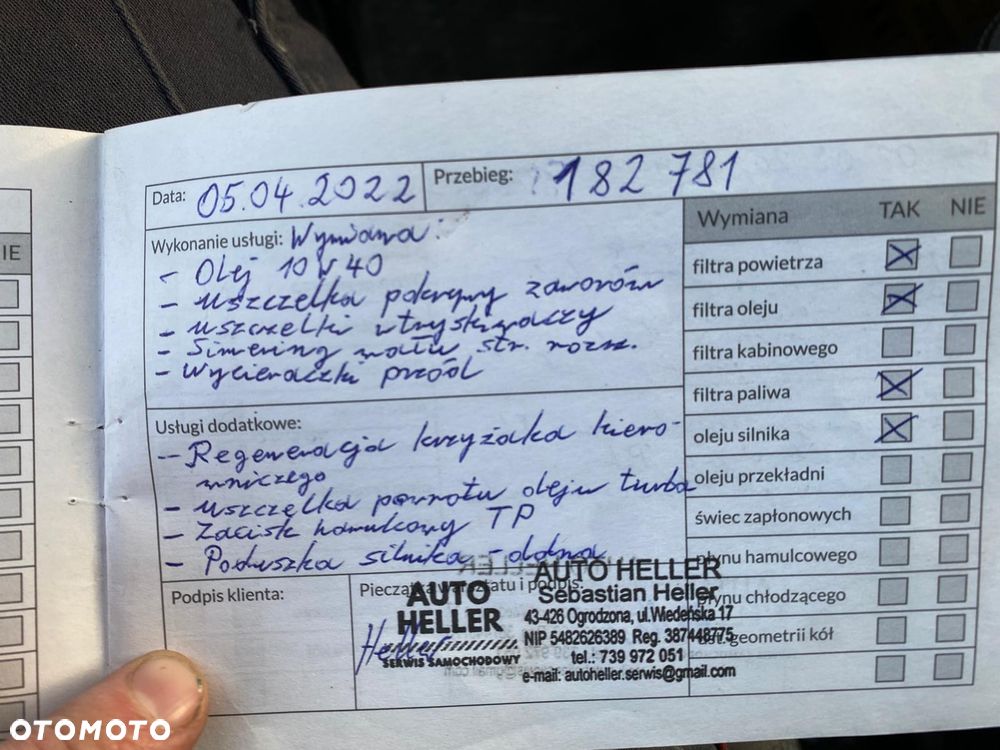 Data: 05.04.2022 Przebieg: 182 781
Wykonanie usługi: Wymiana:
- Olej 10W40
- uszczelka pokrywy zaworów
- uszczelki wtryskiwaczy
- Simering wału str. rozrz.
- Wycieraczki przód
Usługi dodatkowe:
- Regeneracja krzyżaka kiero-
wniczego
- uszczelka powrotu oleju turba
- Zacisk hamulcowy TP
- Poduszka silnika - dolna
Wymiana TAK NIE
filtra powietrza
filtra oleju
filtra kabinowego
filtra paliwa
oleju silnika
oleju przekładni
świec zapłonowych
płynu hamulcowego
płynu chłodzącego
geometrii kół
Podpis klienta:
i podpis:
Heller
AUTO
HELLER
SERWIS SAMOCHODOWY
AUTO HELLER
Sebastian Heller
43-426 Ogrodzona, ul.Wiedeńska 17
NIP 5482626389 Reg. 387448775
tel.: 739 972 051
e-mail: autoheller.serwis@gmail.com
IE
OTOMOTO